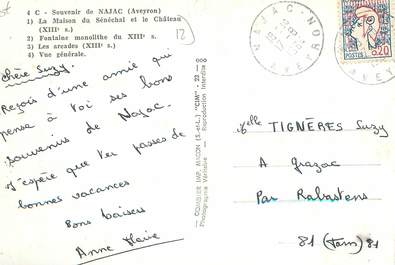 4 C - Souvenir de NAJAC (Aveyron)
1) La Maison du Sénéchal et le Château
(XIIIe s.)
2) Fontaine monolithe du XIIIe s.
3) Les arcades (XIIIe s.)
4) Vue générale.
12
Chère Suzy.
Reçois d'une amie qui
pense à toi ses bons
souvenirs de Najac.
J'espère que tu passes de
bonnes vacances
Bons baisers
Anne Marie
COMBIER IMP. MACON (S.-et-L.) "CIM"
Photographie Véritable - Reproduction Interdite
NAJAC
AVEYRON
0,20
Melle TIGNÈRES Suzy
A Grazac
Par Rabastens
81 (Tarn) 81